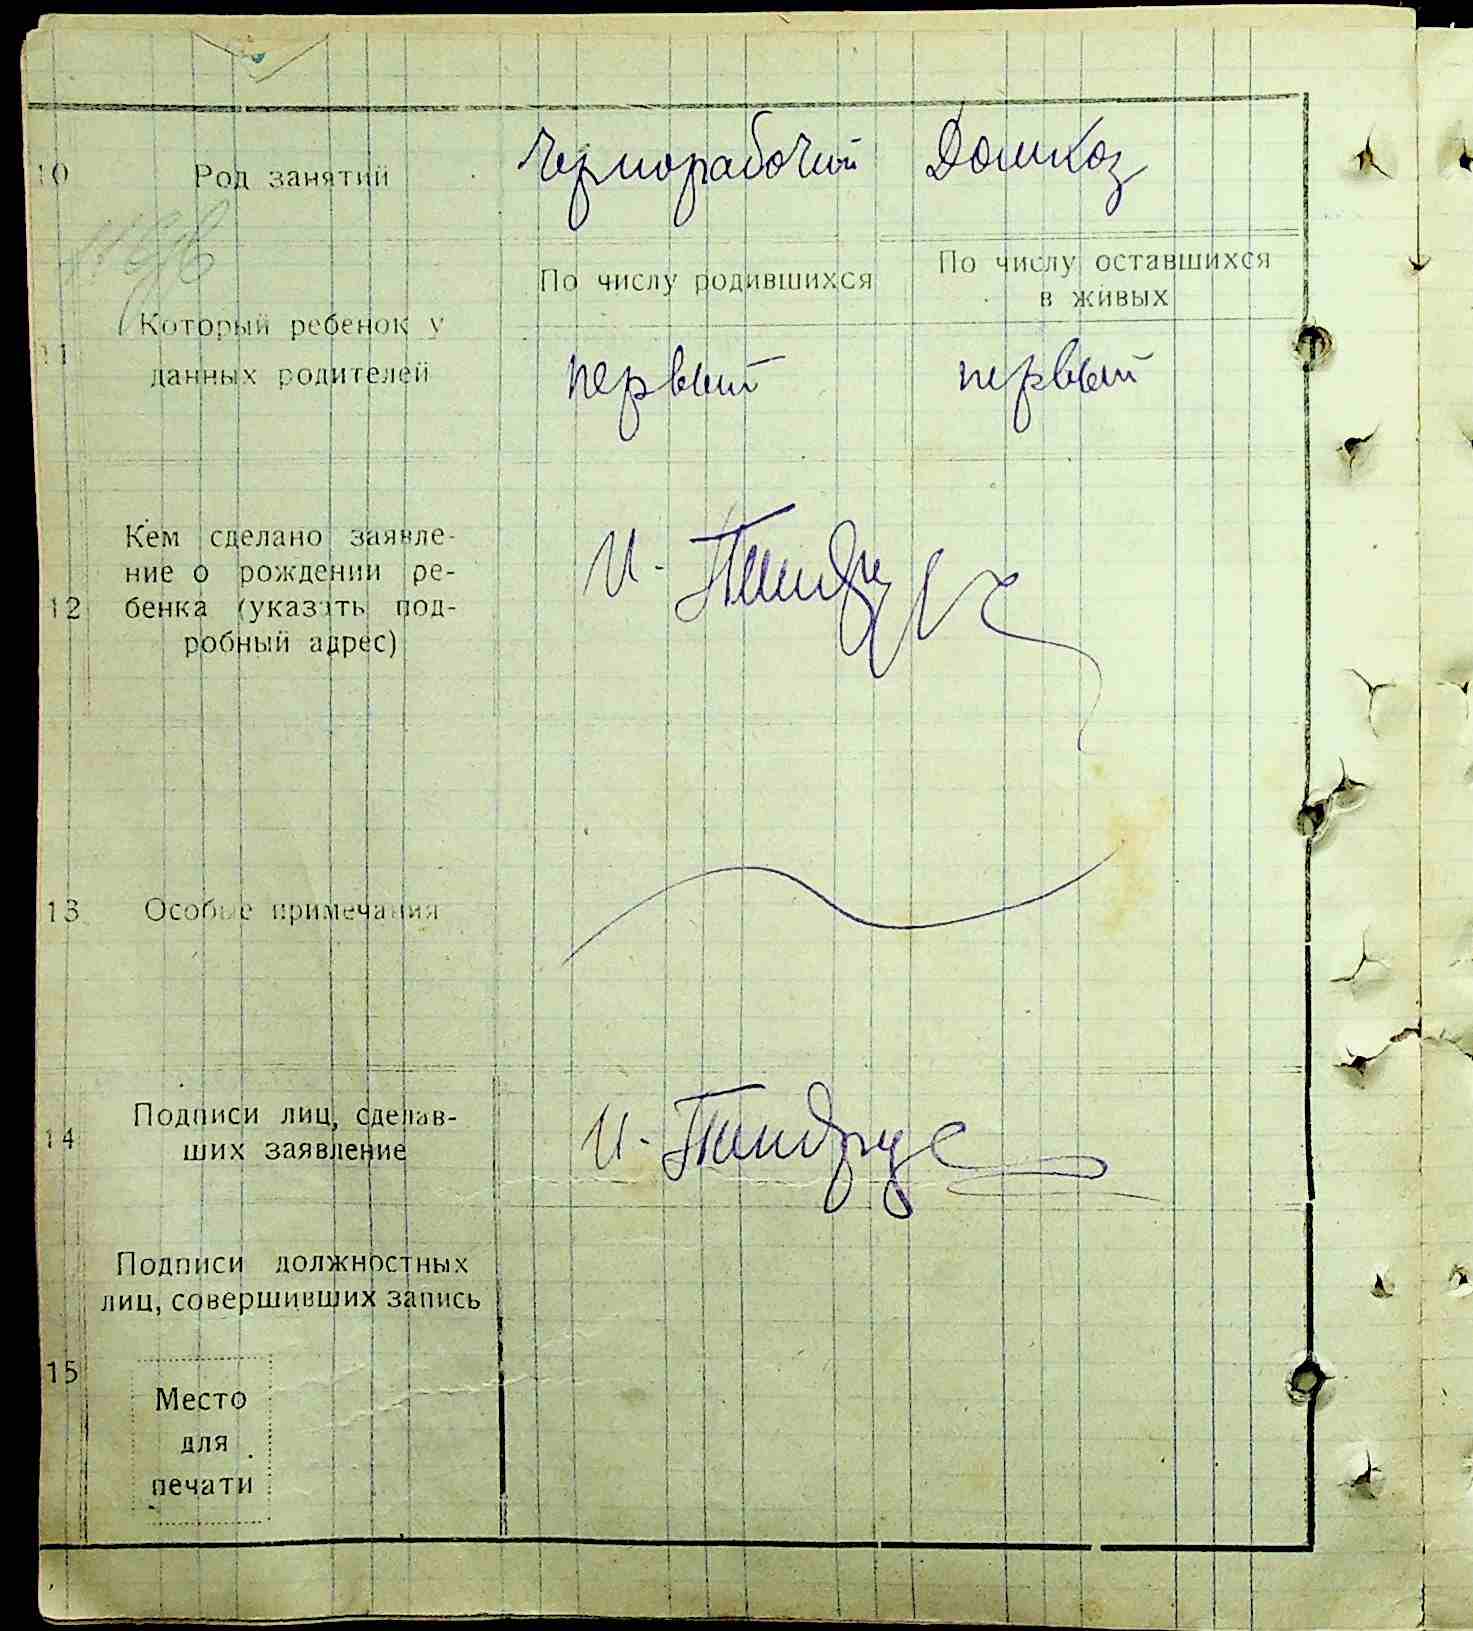 10 Род занятий чернорабочий Домхоз
По числу родившихся По числу оставшихся
в живых
11 Который ребенок у
данных родителей первый первый
Кем сделано заявле-
ние о рождении ре-
12 бенка (указать под-
робный адрес)
И.
13 Особые примечания
14 Подписи лиц, сделав-
ших заявление
И.
Подписи должностных
лиц, совершивших запись
15
Место
для
печати